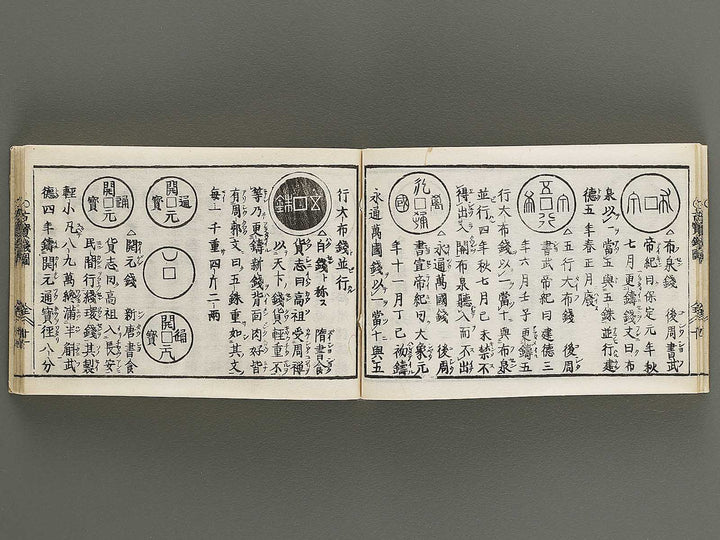 布泉
△布泉錢　後周書武
帝紀曰保定元年秋
七月更鑄錢文曰布
泉以一當五與五銖並行建
德五年春正月廢
五行大布
△五行大布錢　後周
書武帝紀曰建德三
年六月壬子更鑄五
行大布錢以一當十與布泉
並行四年秋七月己未禁不
得出入關布泉聽入而不出
永通萬國
△永通萬國錢　後周
書宣帝紀曰大象元
年十一月丁巳初鑄
永通萬國錢以一當十與五
行大布錢並行
五銖
△白錢ト称ス　隋書食
貨志曰高祖受周禪
以天下錢貨輕重不
等乃更鑄新錢背面肉好皆
有周郭文曰五銖重如其文
每一千重四斤二兩
開元通寶
開元通寶
開元通寶
△開元錢　新唐書食
貨志曰高祖入長安
民間行綫環錢其製
輕小凡八九萬纔滿半斛武
德四年鑄開元通寶徑八分